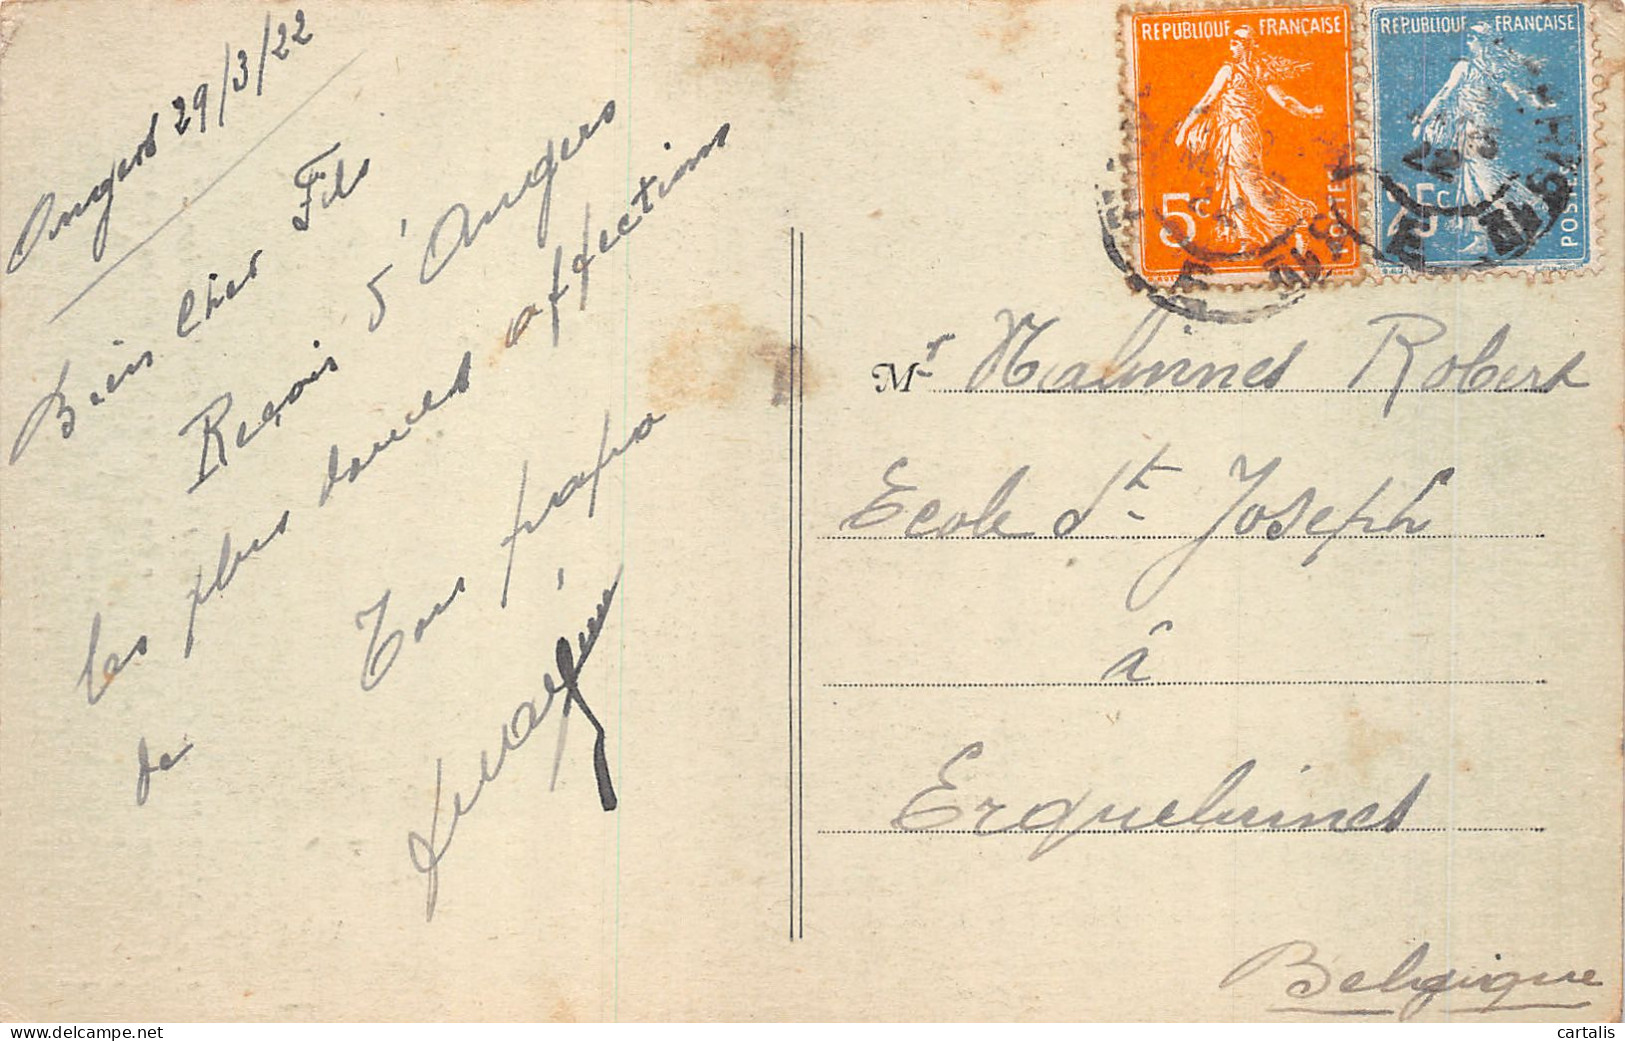 Angers 29/3/22
Bien cher Fils
Reçois d'Angers
les plus douces affections
de Tons papa
REPUBLIQUE FRANÇAISE
5c
POSTES
REPUBLIQUE FRANÇAISE
25c
POSTES
Mr Robert
Ecole St. Joseph
à
Erquelinnes
Belgique
cartalis